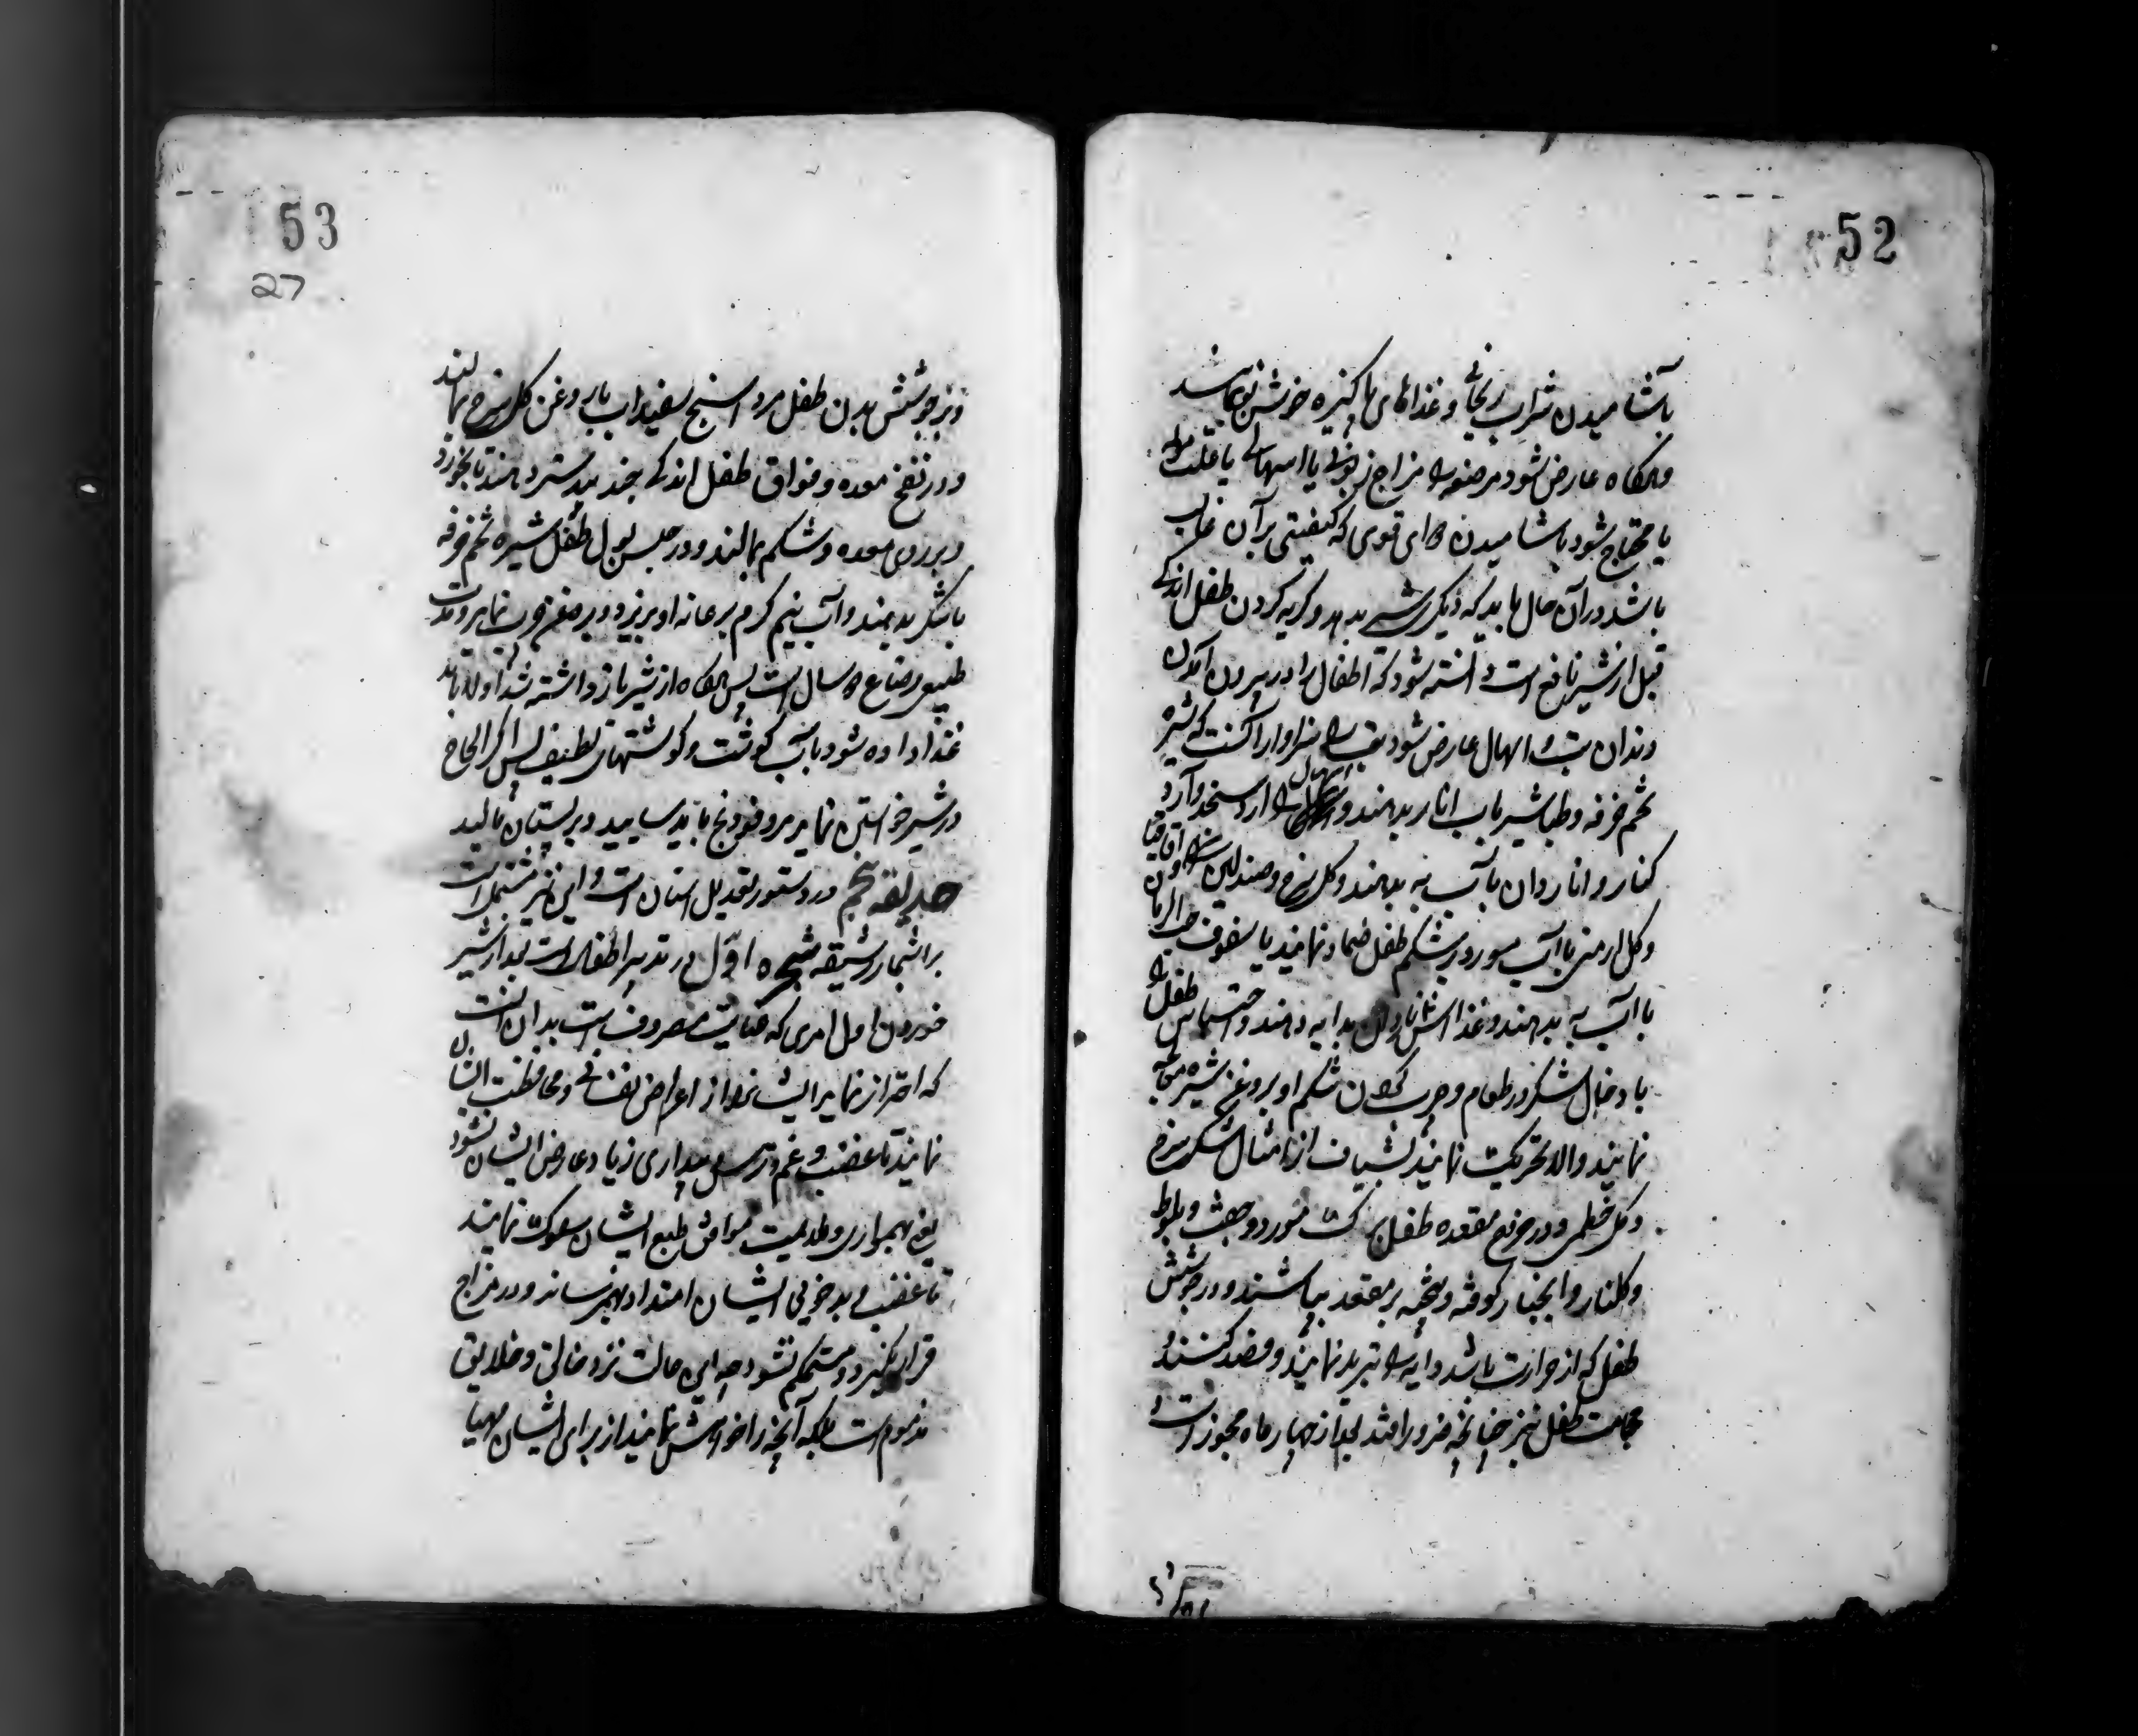 52
بآشامیدن شراب ریحانی و غذاهای پاکیزه خوش نمایند
وهرگاه عارض شود مرضعه را مزاج زبونی یا اسهالی یا علت مولمه
یا محتاج شود بآشامیدن دوای قوی که کیفیتی بر آن غالب
باشد در آن حال باید که دیگری شیر بدهد و گریه کردن طفل اندکی
قبل از شیر نافع است و دانسته شود که اطفال را در بیرون آمدن
دندان تب و اسهال عارض شود تب را سزاوار آنست که شیره
تخم خرفه و طباشیر باب انار بدهند و اسهال را آرد سنجد و آرد
کنار و انار دان بآب به بدهند و گل سرخ و صندلین و اقاقیا
و گل ارمنی با آب مورد بر شکم طفل ضماد نمایند یا سفوف حب الرمان
با آب به بدهند و غذا اش ناردان بدایه دهند و احتباس طفل را
با دخال شکر در طعام و چرب کردن شکم او بروغن شیره پخته
نمایند والا تحریک نمایند بشیاف از امثال شکر سرخ
و گل خطمی و در خروج مقعده طفل برگ مورد و جفت بلوط
و گلنار و انجبار کوفته و بیخته بر مقعد بپاشند و در جوشش
طفل که از حرارت باشد دایه را تبرید نمایند و فصد کنند و
حجامت طفل نیز چنانچه ضرور افتد بعد از چهار ماه مجوز است و
53
27
و بر جوشش بدن طفل مرداسنج سفیداب با روغن گل سرخ بمالند
و در نفخ معده و فواق طفل اندکی جند بیدستر دهند تا بخورد
و بر روی معده و شکم بمالند و در حبس بول طفل شیره تخم خرفه
با شکر بدهند و آب نیم گرم بر عانه او بریزد و بر صغر خوب نماید و مدت
طبیعی رضاع دو سال است پس هرگاه از شیر باز داشته شد اولا باید
غذا داده شود بآب گوشت و گوشتهای لطیف پس اگر الحاح
در شیر خواستن نماید مر و فودنج باید سایید و بر پستان مالید
حدیقه پنجم در دستور تعدیل اسنان است و این نیز مشتمل است
بر اشجار رشیقه شجره اول در تدبیر اطفال است بعد از شیر
خوردن اول امری که عنایت مصروف است بدان آنست
که احتراز نماید ایشانرا از اعراض نفسانی و محافظت ایشان
نمایند تا غضب و غم و ترس و بیداری زیاد عارض ایشان نشود
یعنی بهمواری و ملایمت موافق طبع ایشان سلوک نمایند
تا غضب و بدخویی ایشان امتداد بهم نرساند و در مزاج
قرار نگیرد و مستحکم نشود چه این حالت نزد خالق و خلایق
مذموم است بلکه آنچه را خواهش نمایند از برای ایشان مهیا